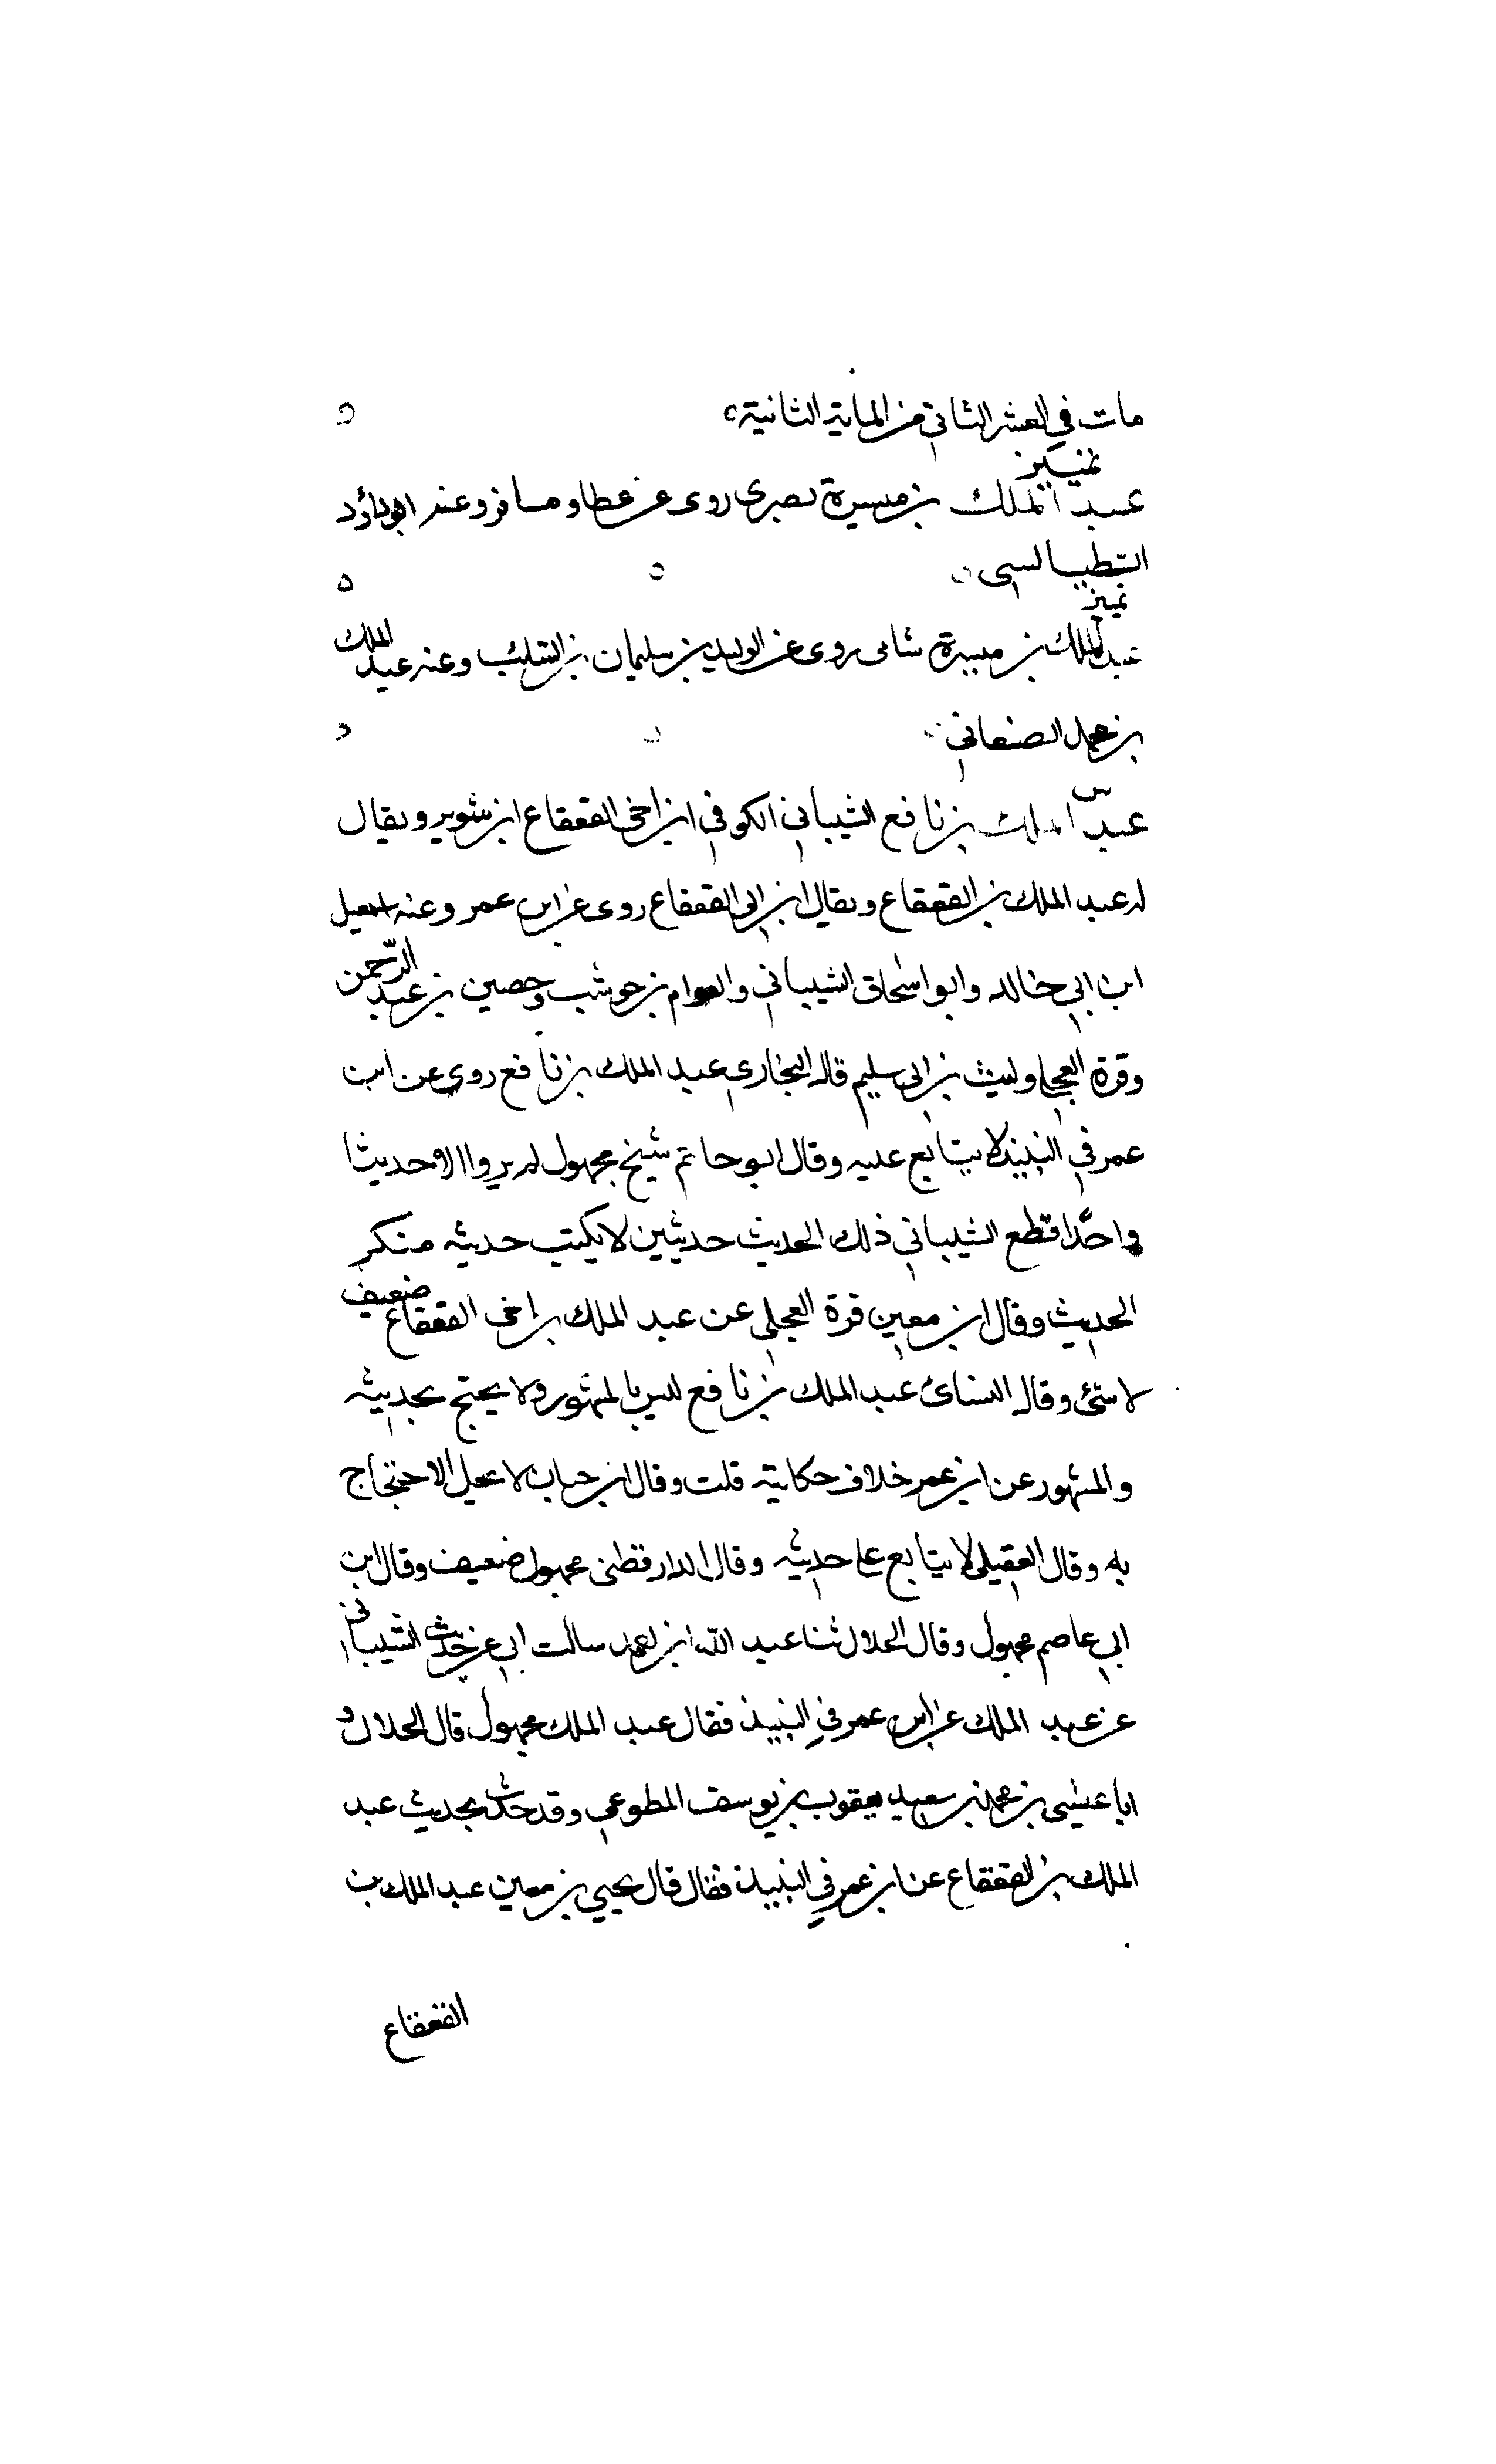 مات في العشر الثاني من الماية الثانية
تمييز
عبد الملك بن ميسرة بصري روى عن عطا ومسافر وعنه ابوداؤد
الطيالسي
تمييز
عبد الملك بن ميسرة شامي روى عن الوليد بن سليمان بن السائب وعنه عبد الملك
بن محمد الصنعاني
س
عبد الملك بن نافع الشيباني الكوفي ابن اخي القعقاع ابن شوير ويقال
له عبد الملك بن القعقاع ويقال ابن ابي القعقاع روى عن ابن عمر وعنه اسمعيل
ابن ابي خالد وابو اسحاق الشيباني والعوام بن حوشب وحصين بن عبد الرحمن
وقرة العجلي وليث بن ابي سليم قال البخاري عبد الملك بن نافع روى عن ابن
عمر في النبيذ لا يتابع عليه وقال ابو حاتم شيخ مجهول لم يروا الا حديثا
واحدا قطع الشيباني ذلك الحديث حديثين لا يكتب حديثه منكر
الحديث وقال ابن معين قرة العجلي عن عبد الملك بن اخي القعقاع ضعيف
لا شئ وقال النسائ عبد الملك بن نافع ليس بالمشهور ولا يحتج بحديثه
والمشهور عن ابن عمر خلاف حكايته قلت وقال ابن حبان لا يحل الاحتجاج
به وقال العقيلي لا يتابع على حديثه وقال الدارقطني مجهول ضعيف وقال ابن
ابي عاصم مجهول وقال الخلال ثنا عبد الله ابن احمد سالت ابي عن حديث الشيباني
عن عبد الملك عن ابن عمر في النبيذ فقال عبد الملك مجهول قال الخلال و
ابا عيسى بن محمد بن سعيد يعقوب بن يوسف المطوعي وقد حدث بحديث عبد
الملك بن القعقاع عن ابن عمر في النبيذ فقال قال يحيي بن معين عبد الملك بن
القعقاع